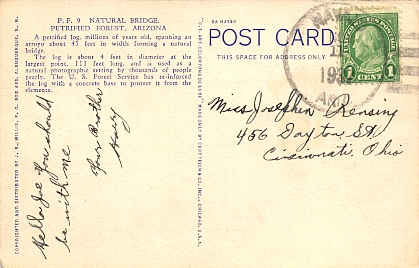 P. F. 9 NATURAL BRIDGE,
PETRIFIED FOREST, ARIZONA
A petrified log, millions of years old, spanning an
arroyo about 45 feet in width forming a natural
bridge.
The log is about 4 feet in diameter at the
largest point, 111 feet long, and is used as a
natural photographic setting by thousands of people
yearly. The U. S. Forest Service has re-inforced
the log with a concrete base to protect it from the
elements.
Hello Joe You should
be with me
Your Brother
Harry
COPYRIGHTED AND DISTRIBUTED BY J. R. WILLIS, P. O. BOX 665, ALBUQUERQUE, N. M.
"C.T. ART-COLORTONE" CURT TEICH & CO., INC., CHICAGO, U.S.A.
5A-H2540
POST CARD
THIS SPACE FOR ADDRESS ONLY
UNITED STATES POSTAGE
1 CENT 1
ARIZ
Miss Josephin Rensing
456 Dayton St
Cincinnati Ohio